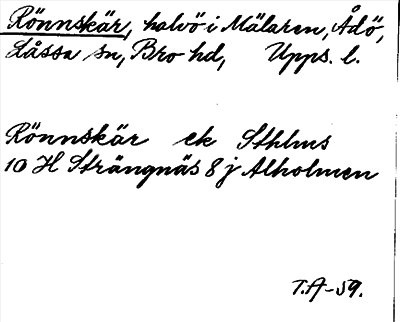 Rönnskär, halvö i Mälaren, Ådö,
Låssa sn, Bro hd, Upps. l.
Rönnskär ek Sthlms
10 H Strängnäs 8 j Alholmen
T.A-59.